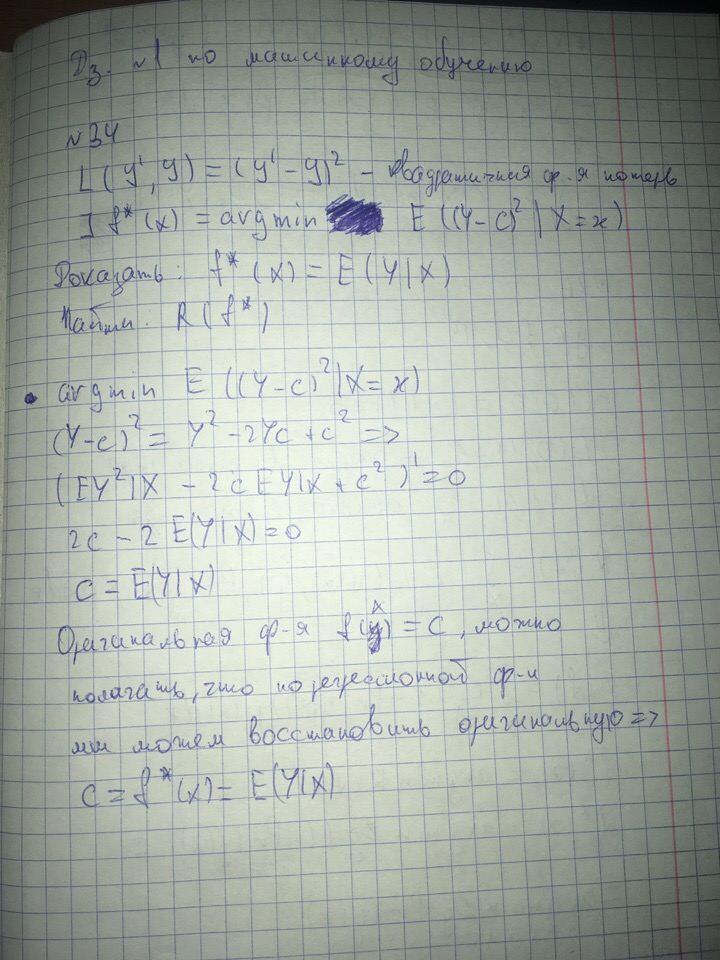 Дз. №1 по машинному обучению
№34
L(y', y) = (y' - y)² - квадратичная ф-я потерь
] f*(x) = argmin E((Y-c)² | X=x)
Доказать: f*(x) = E(Y|X)
Найти: R(f*)
• argmin E((Y-c)²|X=x)
(Y-c)² = Y² - 2Yc + c² =>
(EY²|X - 2cEY|X + c²)' = 0
2c - 2E(Y|X) = 0
c = E(Y|X)
Оригинальная ф-я f(x) = c, можно
полагать, что по регрессионной ф-и
мы можем восстановить оригинальную =>
c = f*(x) = E(Y|X)